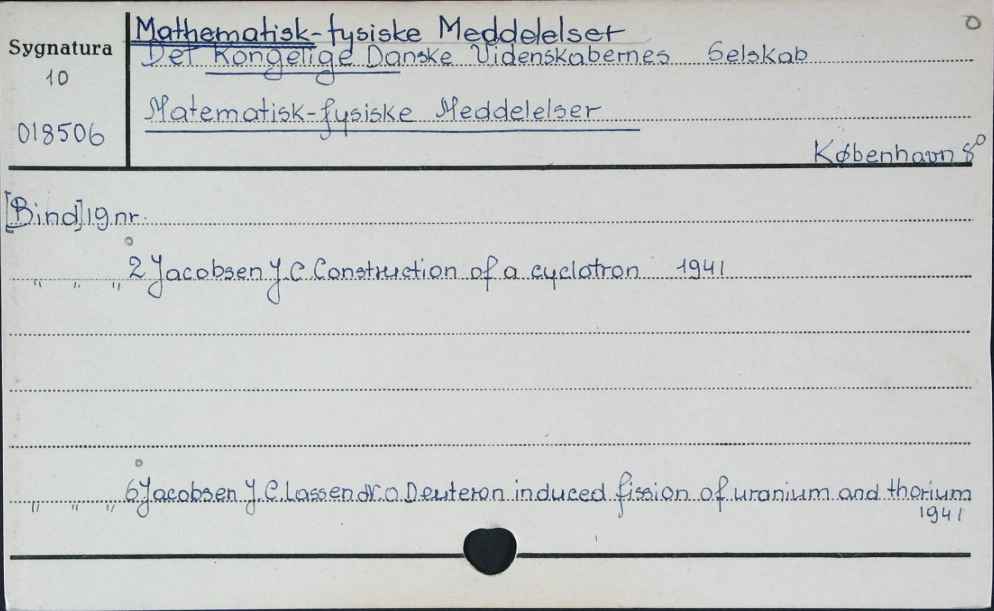 Mathematisk-fysiske Meddelelser
Sygnatura
Det Kongelige Danske Videnskabernes Selskab
10
Matematisk-fysiske Meddelelser
018506
København 8°
[Bind] 19 nr.
" " " 2 Jacobsen J.C. Construction of a cyclotron 1941
" " " 6 Jacobsen J.C. Lassen N.O Deuteron induced fission of uranium and thorium
1941